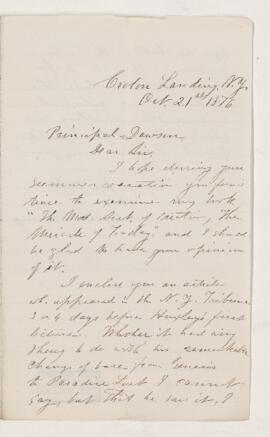 Croton Landing, N.Y.
Oct. 21st 1876
Principal Dawson,
Dear Sir,
I hope during your
summer vacation you found
time to examine my book
"The Mos. Acct. of Creation, The
Miracle of Today," and I should
be glad to have your opinion
of it.
I enclose you an article
wh. appeared in the N.Y. Tribune
3 or 4 days before Huxley's first
lecture. Whether it had any
thing to do with his remarkable
change of base from Genesis
to Paradise Lost I cannot
say, but that he saw it, I